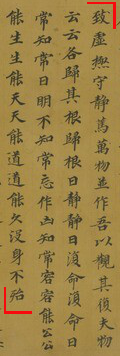 致虛極守靜篤萬物並作吾以觀其復夫物
云云各歸其根歸根曰靜靜曰復命復命曰
常知常曰明不知常忘作凶知常容容能公公
能生生能天天能道道能久沒身不殆